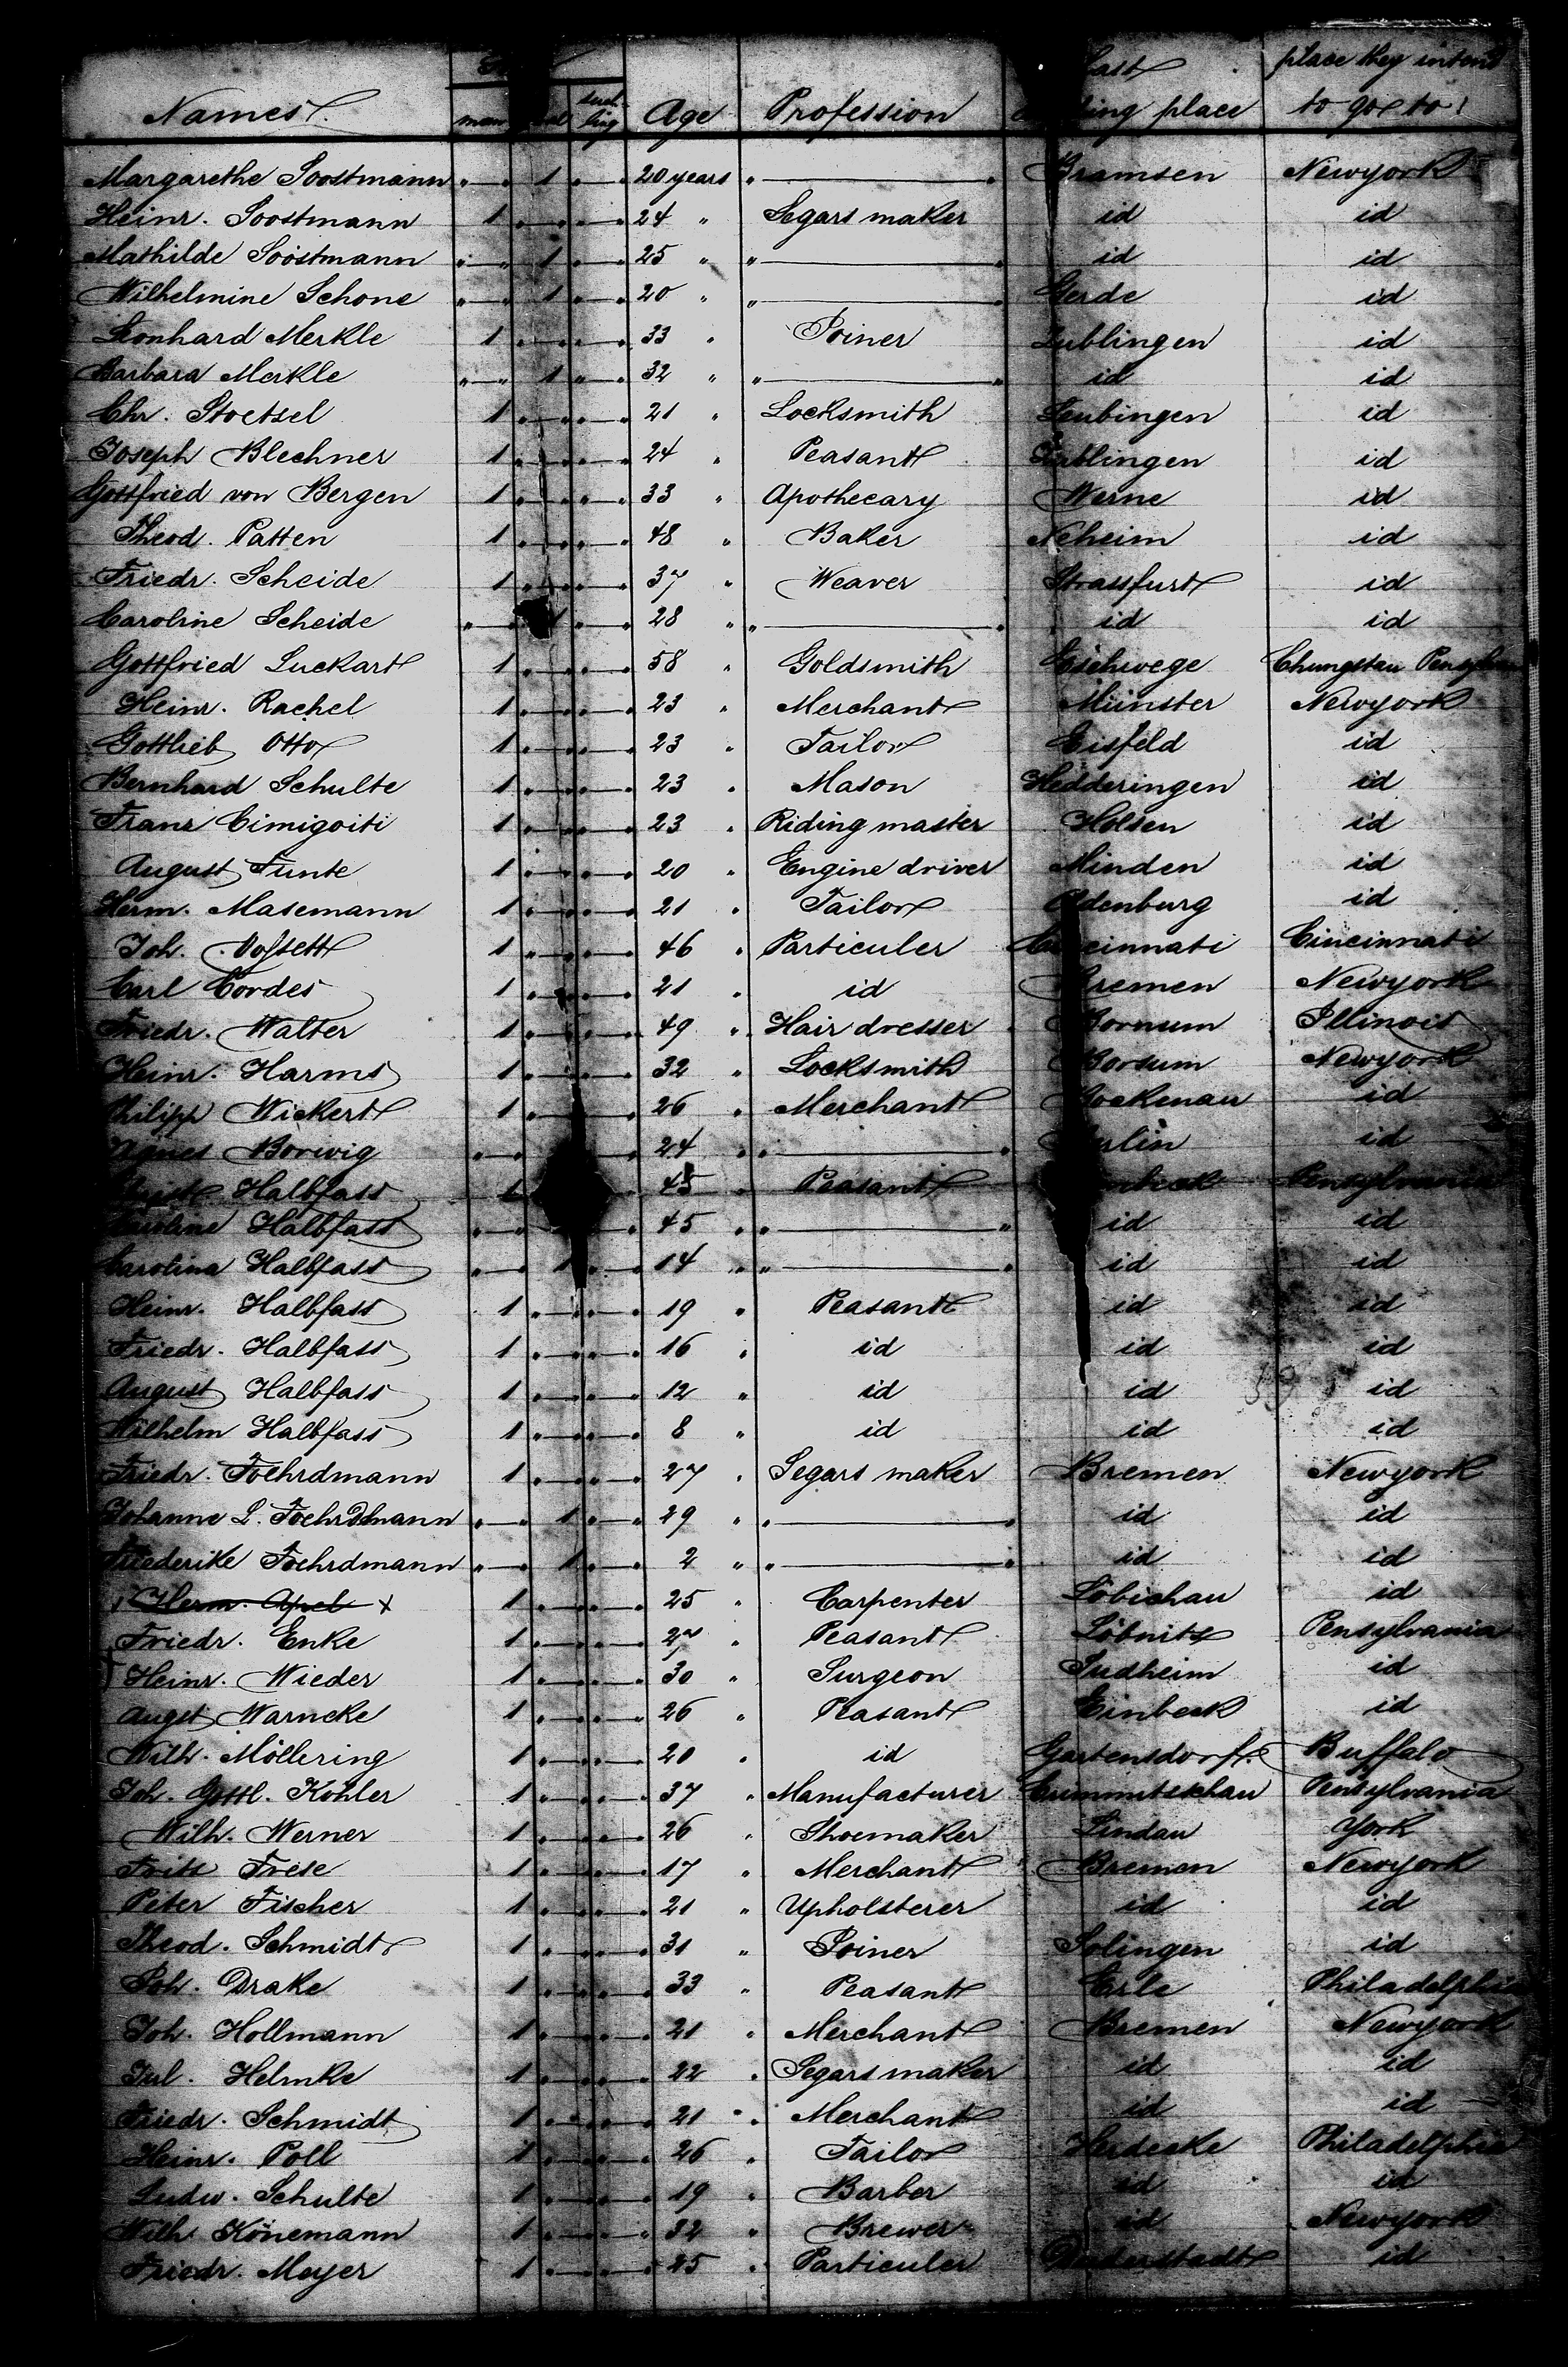 Names. man suck-ling Age Profession Last place place they intend to go to
Margarethe Soostmann " " 1 " " 20 years " " Bramsen Newyork
Heinr. Soostmann 1 " " " " 24 " Segars maker id id
Mathilde Soostmann " " 1 " " 25 " " " id id
Wilhelmine Schone " " 1 " " 20 " " " Gerde id
Leonhard Merkle 1 " " " " 33 " Joiner id
Barbara Merkle " " 1 " " 32 " " " id id
Chr. Stoetzel 1 " " " " 21 " Locksmith Leubingen id
Joseph Blechner 1 " " " " 24 " Peasant id
Gottfried von Bergen 1 " " " " 33 " Apothecary Werne id
Theod. Patten 1 " " " " 48 " Baker Neheim id
Friedr. Scheide 1 " " " " 37 " Weaver Strassfurt id
Caroline Scheide " 1 " " 28 " " " id id
Gottfried Luckart 1 " " " " 58 " Goldsmith Eschwege
Heinr. Rachel 1 " " " " 23 " Merchant Münster Newyork
Gottlieb Otto 1 " " " " 23 " Tailor Eisfeld id
Bernhard Schulte 1 " " " " 23 " Mason Hedderingen id
Franz Cimigoiti 1 " " " " 23 " Riding master Holsen id
August Funte 1 " " " " 20 " Engine driver Minden id
Herm. Masemann 1 " " " " 21 " Tailor Oldenburg id
Joh. 1 " " " " 46 " Particuler Cincinnati Cincinnati
Carl Cordes 1 " " " " 21 " id Bremen Newyork
Friedr. Walter 1 " " " " 49 " Hair dresser Bornum Illinois
Heinr. Harms 1 " " " " 32 " Locksmith Borsum Newyork
Philipp Wickert 1 " " " " 26 " Merchant Bockenau id
Agnes Borwig " " " 24 " " " Berlin id
Halbfass 1 " 45 " Peasant Pensylvania
Halbfass " " " 45 " " " id id
Carolina Halbfass " " 1 " " 14 " " " id id
Heinr. Halbfass 1 " " " " 19 " Peasant id id
Friedr. Halbfass 1 " " " " 16 " id id id
August Halbfass 1 " " " " 12 " id id id
Wilhelm Halbfass 1 " " " " 8 " id id id
Friedr. Foehrdmann 1 " " " " 27 " Segars maker Bremen Newyork
Johanne L. Foehrdmann " " 1 " " 29 " " " id id
Friederike Foehrdmann " " 1 " " 2 " " " id id
x Herm. Apel x 1 " " " " 25 " Carpenter Löbichau id
Friedr. Enke 1 " " " " 27 " Peasant Löbnitz Pensylvania
Heinr. Wieder 1 " " " " 30 " Surgeon Sudheim id
Augst Warncke 1 " " " " 26 " Peasant Einbeck id
Wilh. Möllering 1 " " " " 20 " id Gartensdorf Buffalo
Joh. Gottl. Kohler 1 " " " " 37 " Manufacturer Crimmitschau Pensylvania
Wilh. Werner 1 " " " " 26 " Shoemaker Lindau York
Fritz Frese 1 " " " " 17 " Merchant Bremen Newyork
Peter Fischer 1 " " " " 21 " Upholsterer id id
Theod. Schmidt 1 " " " " 31 " Joiner Solingen id
Joh. Drake 1 " " " " 33 " Peasant Erle Philadelphia
Joh. Hollmann 1 " " " " 21 " Merchant Bremen Newyork
Jul. Helmke 1 " " " " 22 " Segars maker id id
Friedr. Schmidt 1 " " " " 21 " Merchant id id
Heinr. Poll 1 " " " " 26 " Tailor Herdecke Philadelphia
Ludw. Schulte 1 " " " " 19 " Barber id id
Wilh. Könemann 1 " " " " 32 " Brewer id Newyork
Friedr. Meyer 1 " " " " 25 " Particuler Duderstadt id